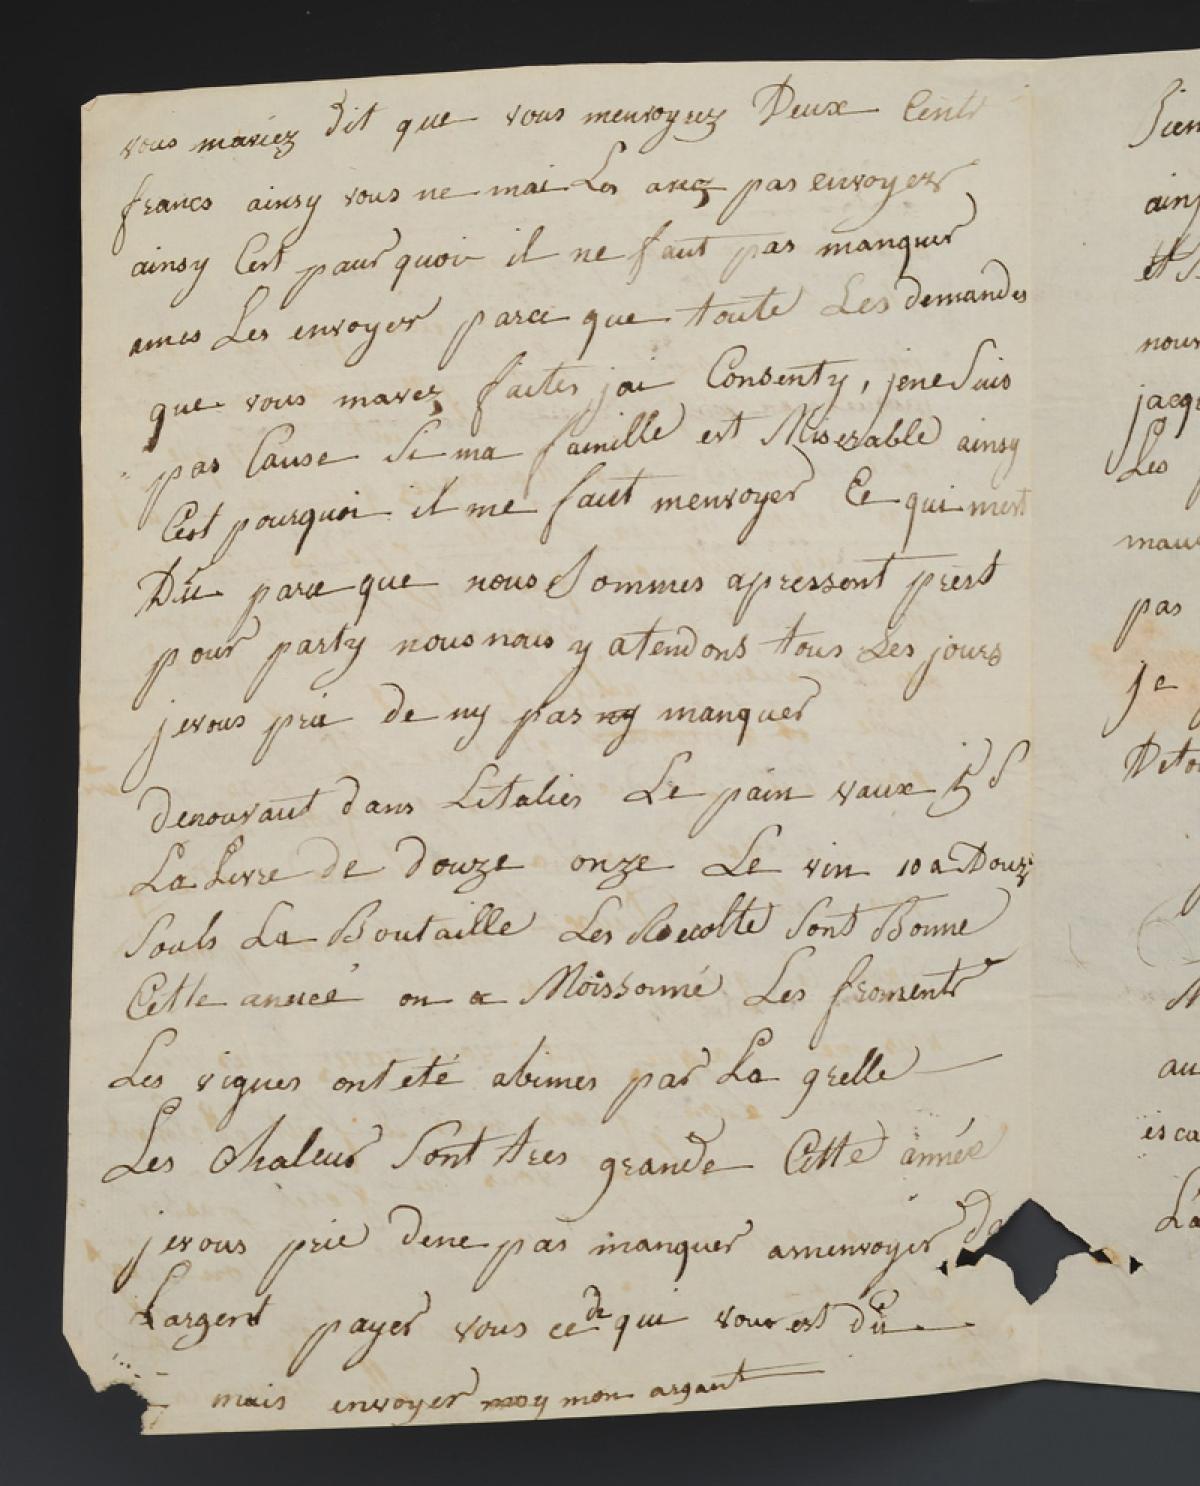 vous maviez dit que vous menvoyez Deux Cents
francs ainsy vous ne mai Les avez pas envoyer
ainsy Cest pourquoi il ne faut pas manquer
ames Les envoyer parce que toute Les demandes
que vous mavez faites jai Consenty, jene Suis
pas Cause Si ma famille est Miserable ainsy
Cest pourquoi il me faut menvoyer Ce qui mest
Dû parce que nous Sommes apressent prest
pour party nous nous y atendons tous Les jours
jevous prie de ny pas ny manquer
denouvaut dans Litalies Le pain vaux 5 S
La Livre de douze onze Le vin 10 a Douze
Souls La Boutaille Les Recolte Sont Bonne
Cette année on a Moissonné Les froments
Les vignes ont eté abimes par La grelle
Les Chaleur Sont tres grande Cette année
jevous prie dene pas manquer amenvoyer de
Largent payer vous ce de qui vous est dû
mais envoyer moy mon argant
Sien
ains
nous
jacq
Les
mau
pas
je
au
La